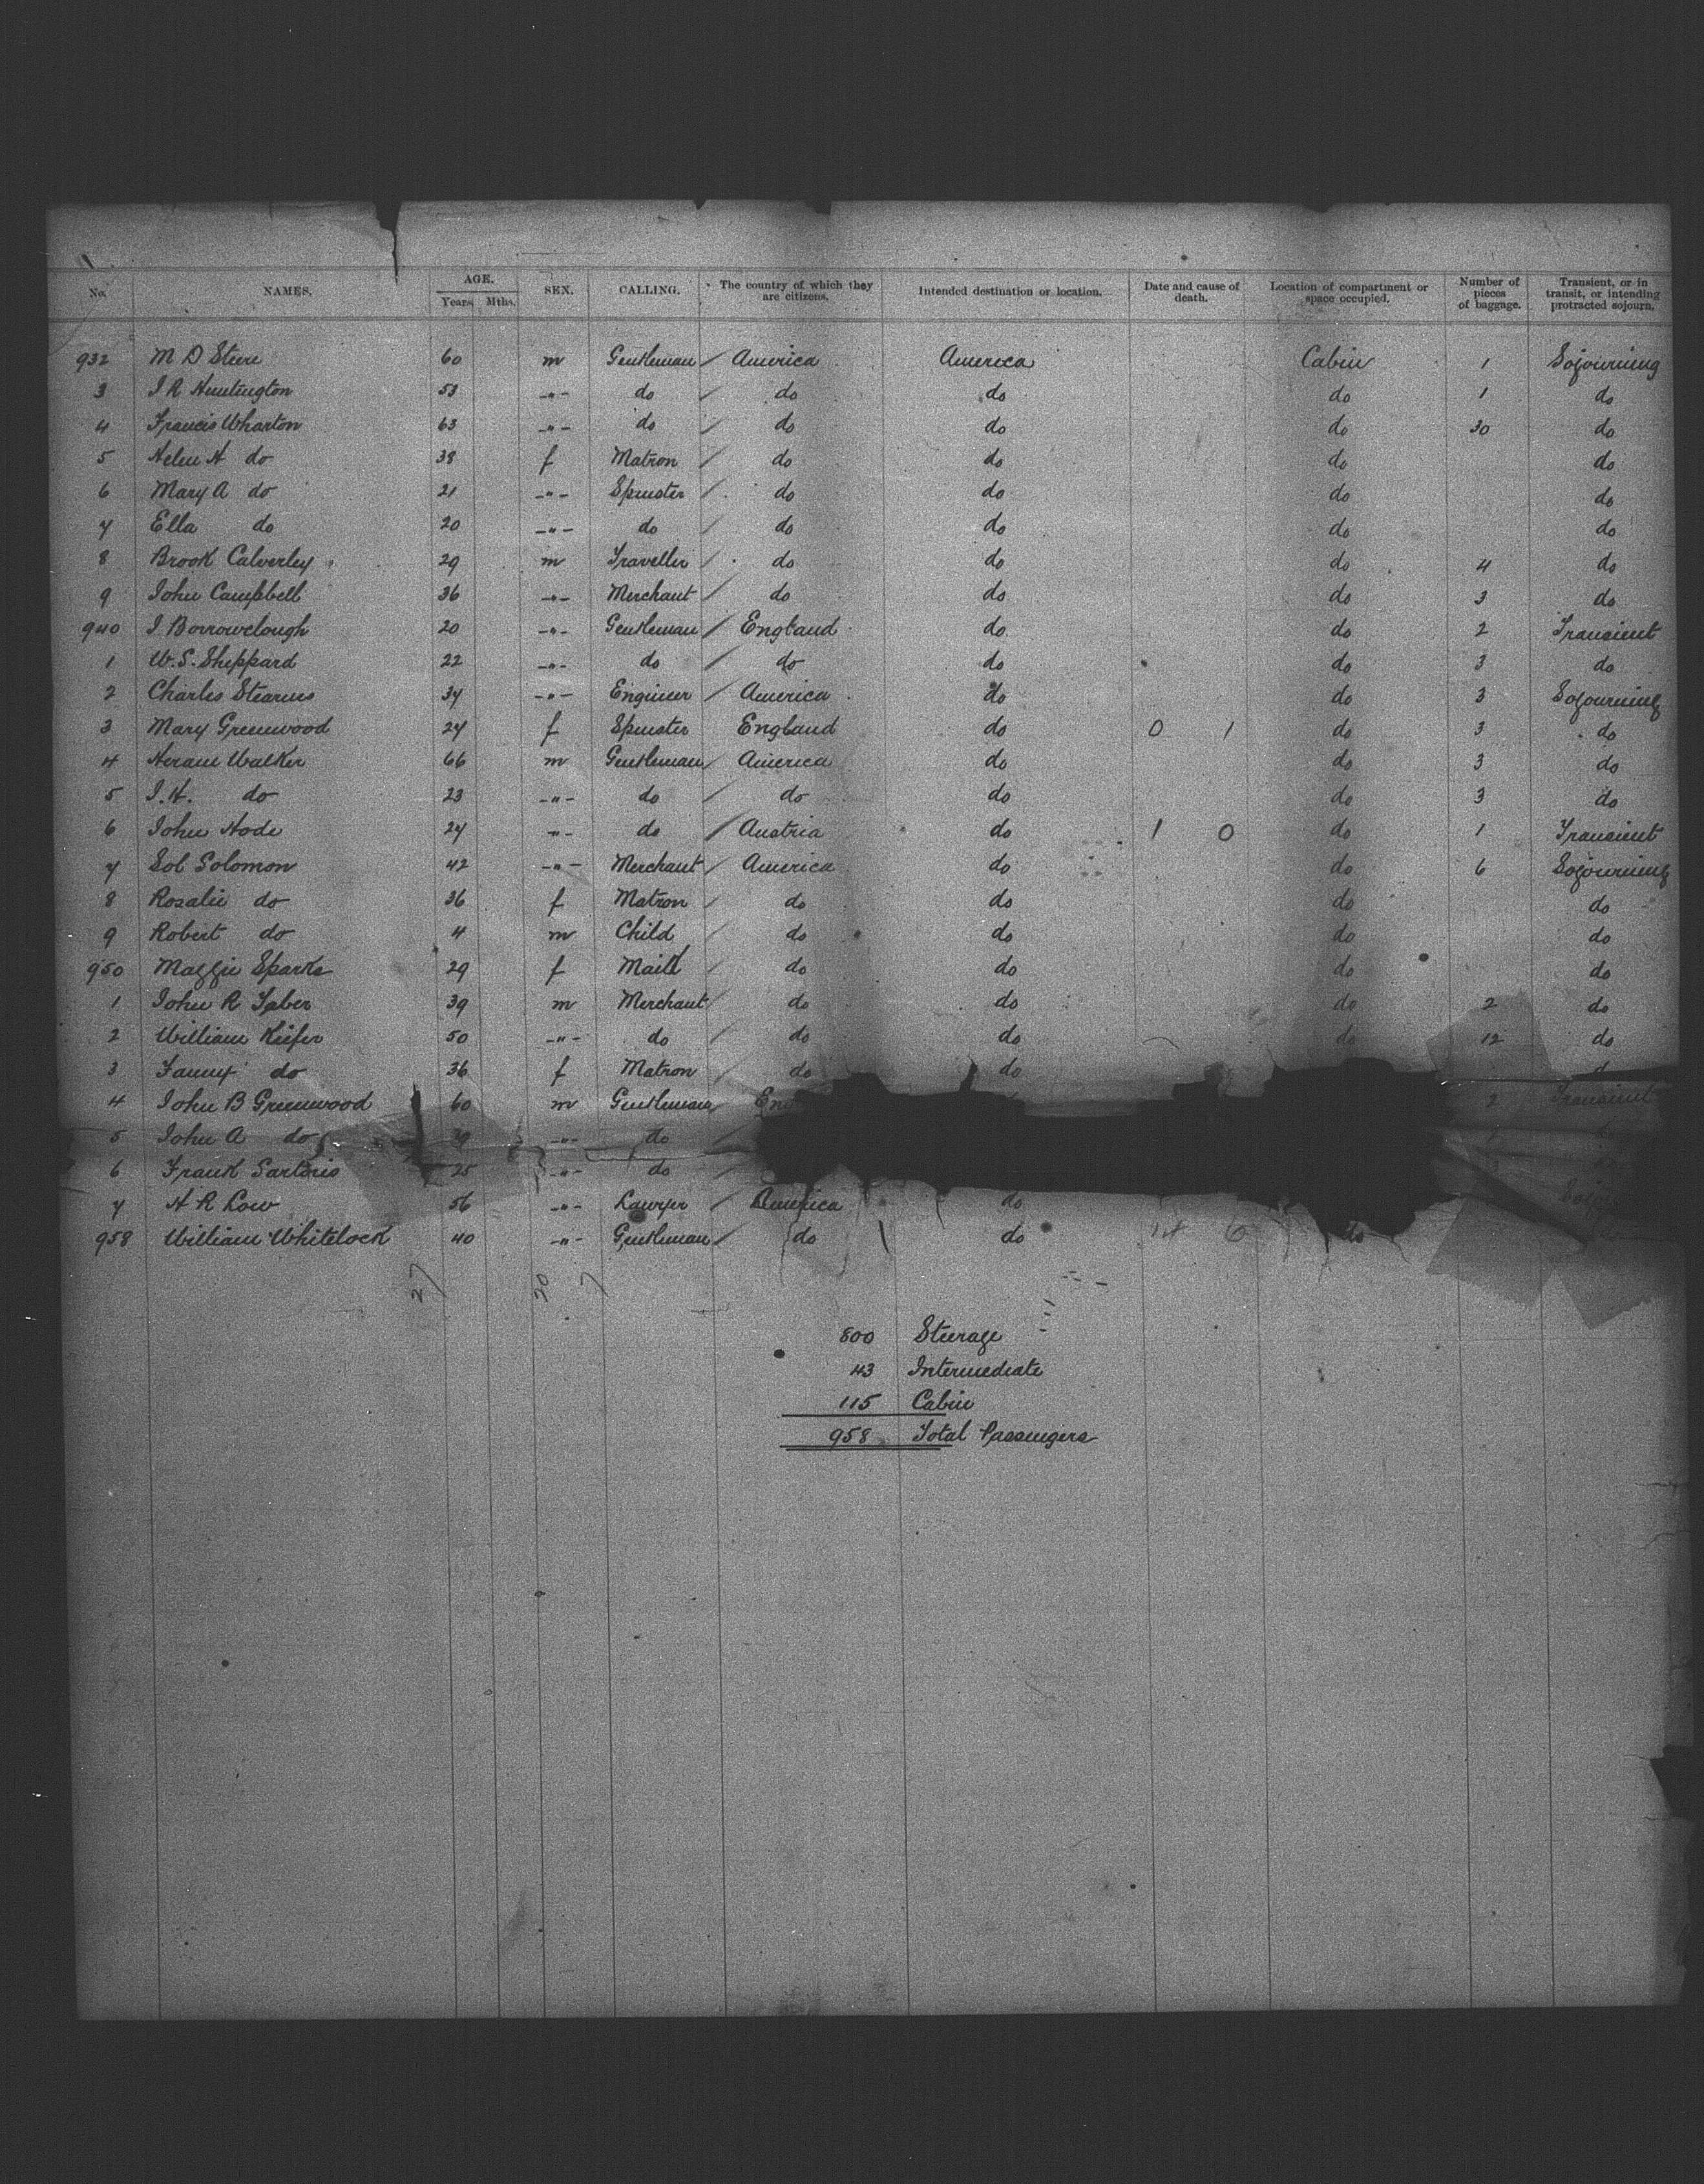 No. NAMES. AGE. Years. Mths. SEX. CALLING. The country of which they are citizens. Intended destination or location. Date and cause of death. Location of compartment or space occupied. Number of pieces of baggage. Transient, or in transit, or intending protracted sojourn.
932 M D Steere 60 m Gentleman / America America Cabin 1 Sojourning
3 I R Huntington 53 -"- do / do do do 1 do
4 Francis Wharton 63 -"- do / do do do 30 do
5 Helen H do 38 f Matron / do do do do
6 Mary A do 21 -"- Spinster / do do do do
7 Ella do 20 -"- do / do do do do
8 Brook Calverley 29 m Traveller / do do do 4 do
9 John Campbell 36 -"- Merchant / do do do 3 do
940 I Borrowclough 20 -"- Gentleman / England do do 2 Transient
1 W.S. Sheppard 22 -"- do / do do do 3 do
2 Charles Stearns 34 -"- Engineer / America do do 3 Sojourning
3 Mary Greenwood 24 f Spinster England do 0 1 do 3 do
4 Heram Walker 66 m Gentleman / America do do 3 do
5 I.H. do 23 -"- do / do do do 3 do
6 John Hode 24 -"- do / Austria do 1 0 do 1 Transient
7 Sol Solomon 42 -"- Merchant / America do do 6 Sojourning
8 Rosalie do 36 f Matron / do do do do
9 Robert do 4 m Child / do do do do
950 Maggie Sparks 29 f Maid / do do do do
1 John R Taber 39 m Merchant / do do do 2 do
2 William Kiefer 50 -"- do / do do do 12 do
3 Fanny do 36 f Matron / do do
4 John B Greenwood 60 m Gentleman / Eng 2 Transient
5 John A do -"- do /
6 Frank Sartoris 25 -"- do /
7 H R Low 56 -"- Lawyer / America do
958 William Whitelock 40 -"- Gentleman / do do do
27 20 7
800 Steerage
43 Intermediate
115 Cabin
958 Total Passengers